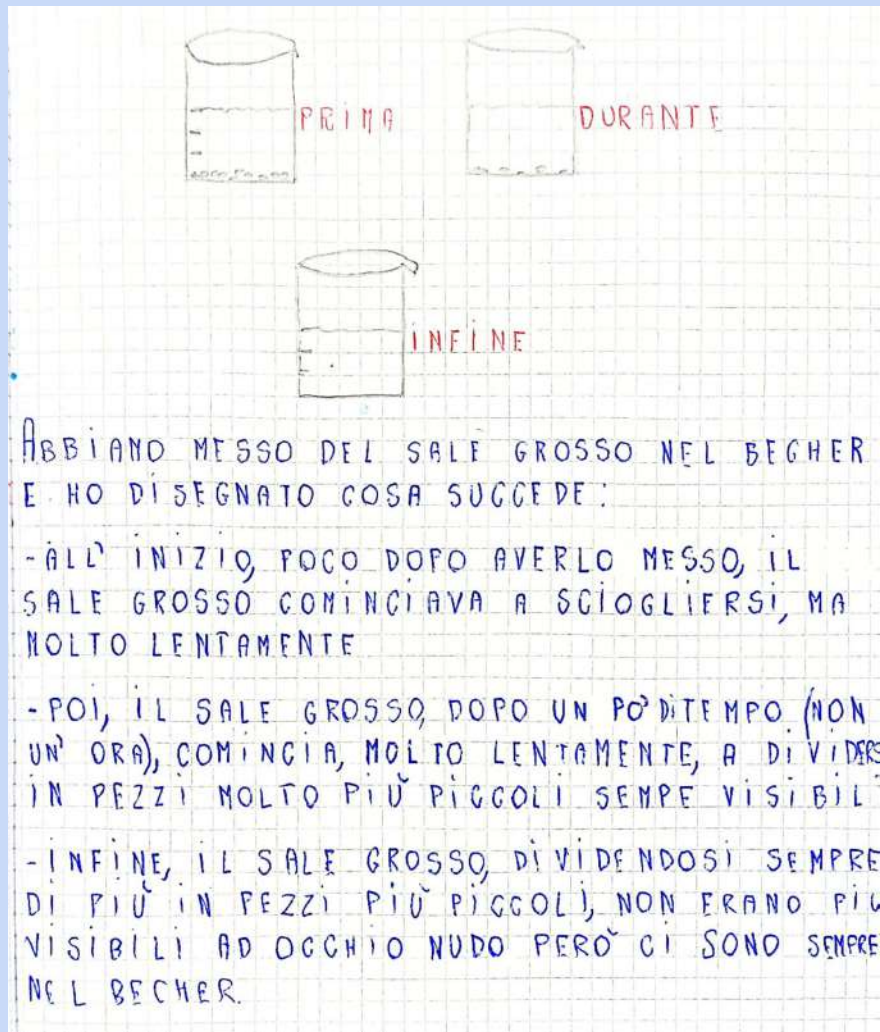 PRIMA
DURANTE
INFINE
ABBIAMO MESSO DEL SALE GROSSO NEL BECHER
E HO DISEGNATO COSA SUCCEDE:
-ALL' INIZIO, POCO DOPO AVERLO MESSO, IL
SALE GROSSO COMINCIAVA A SCIOGLIERSI, MA
MOLTO LENTAMENTE
-POI, IL SALE GROSSO, DOPO UN PO' DI TEMPO (NON
UN' ORA), COMINCIA, MOLTO LENTAMENTE, A DIVIDERS
IN PEZZI MOLTO PIÙ PICCOLI SEMPE VISIBILI
-INFINE, IL SALE GROSSO, DIVIDENDOSI SEMPRE
DI PIÙ IN PEZZI PIÙ PICCOLI, NON ERANO PIÙ
VISIBILI AD OCCHIO NUDO PERÒ CI SONO SEMPRE
NEL BECHER.